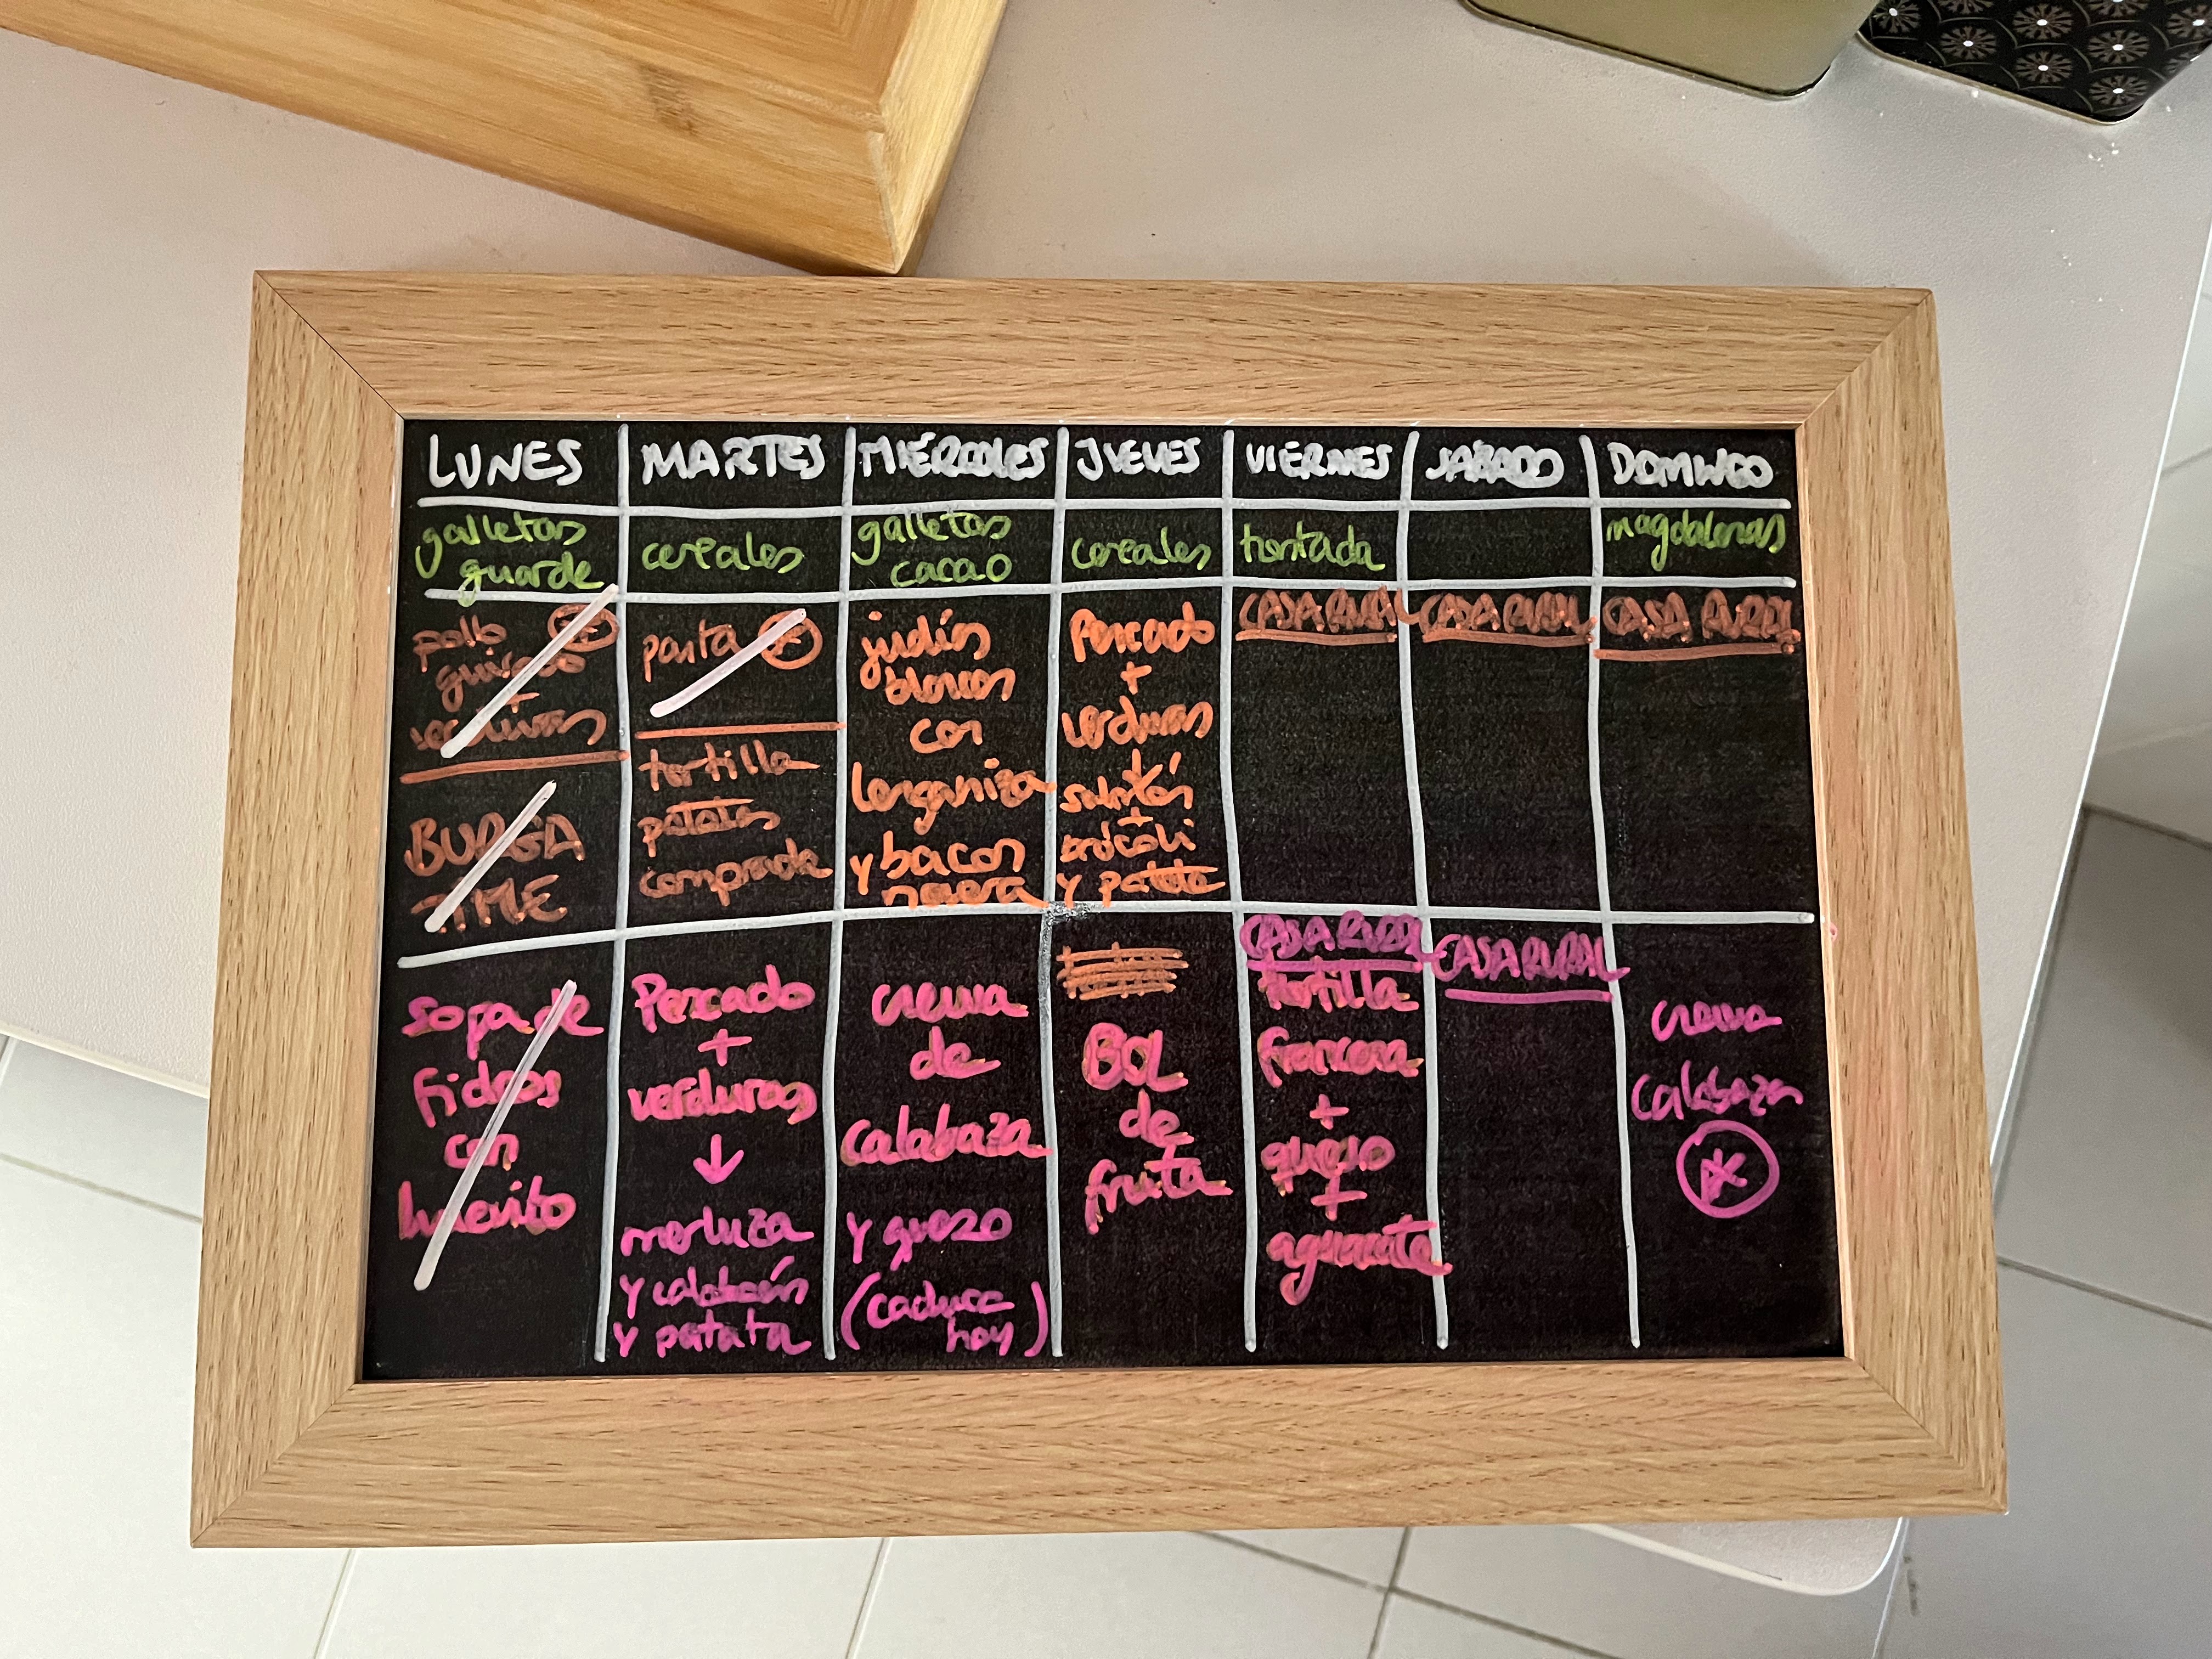 LUNES
MARTES
MIÉRCOLES
JUEVES
VIERNES
SÁBADO
DOMINGO
galletas
guarde
cereales
galletas
cacao
cereales
tostada
magdalenas
pollo
guisado
+
verduras
BURGA
TIME
pasta
tortilla
patatas
comprada
judías
blancas
con
longaniza
y bacon
Pescado
+
verduras
+
brócoli
y patata
CASA RURAL
CASA RURAL
CASA RURAL
sopa de
fideos
con
huevito
Pescado
+
verduras
↓
merluza
y calabacín
y patata
crema
de
calabaza
y queso
(caduca
hoy)
BOL
de
fruta
CASA RURAL
tortilla
francesa
+
queso
+
aguacate
CASA RURAL
crema
calabaza